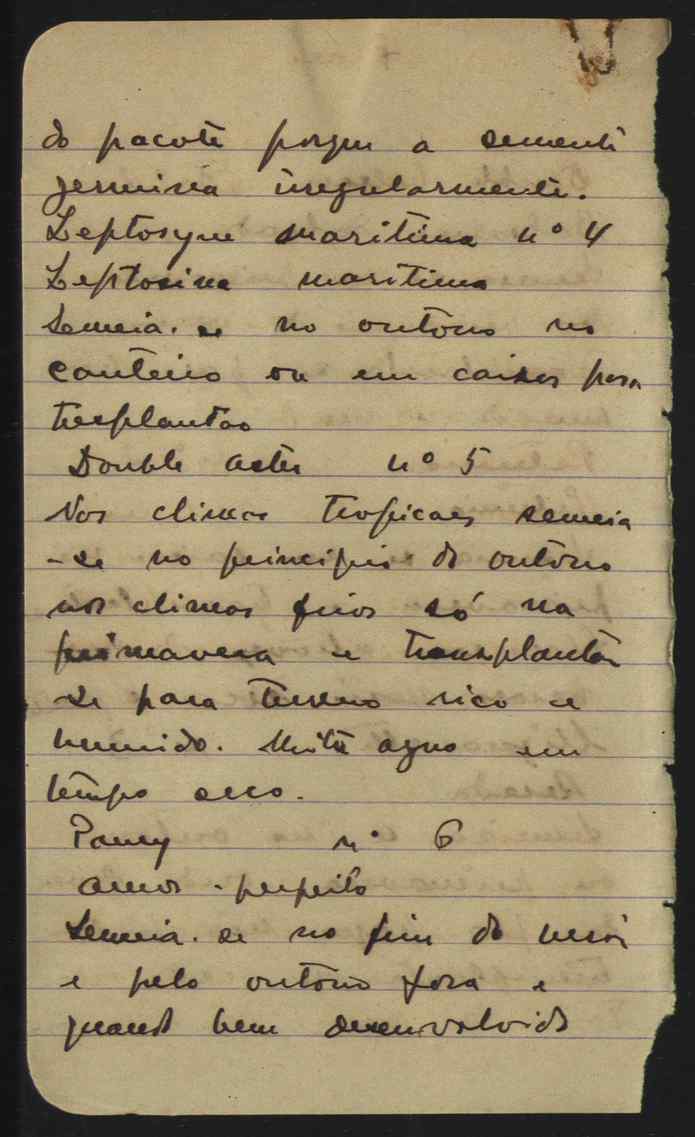 do pacote porque a semente
germina irregularmente.
Leptosyne maritima nº 4
Leptosina maritima
Semeia-se no outono no
canteiro ou em caixas para
tresplantar
Double Aster nº 5
Nos climas tropicaes semeia
-se no principio do outono
nos climas frios só na
primavera e transplanta
se para terreno rico e
humido. Muita agua em
tempo seco.
Pansy nº 6
amor-perfeito
Semeia-se no fim do verão
e pelo outono fora e
quando bem desenvolvido